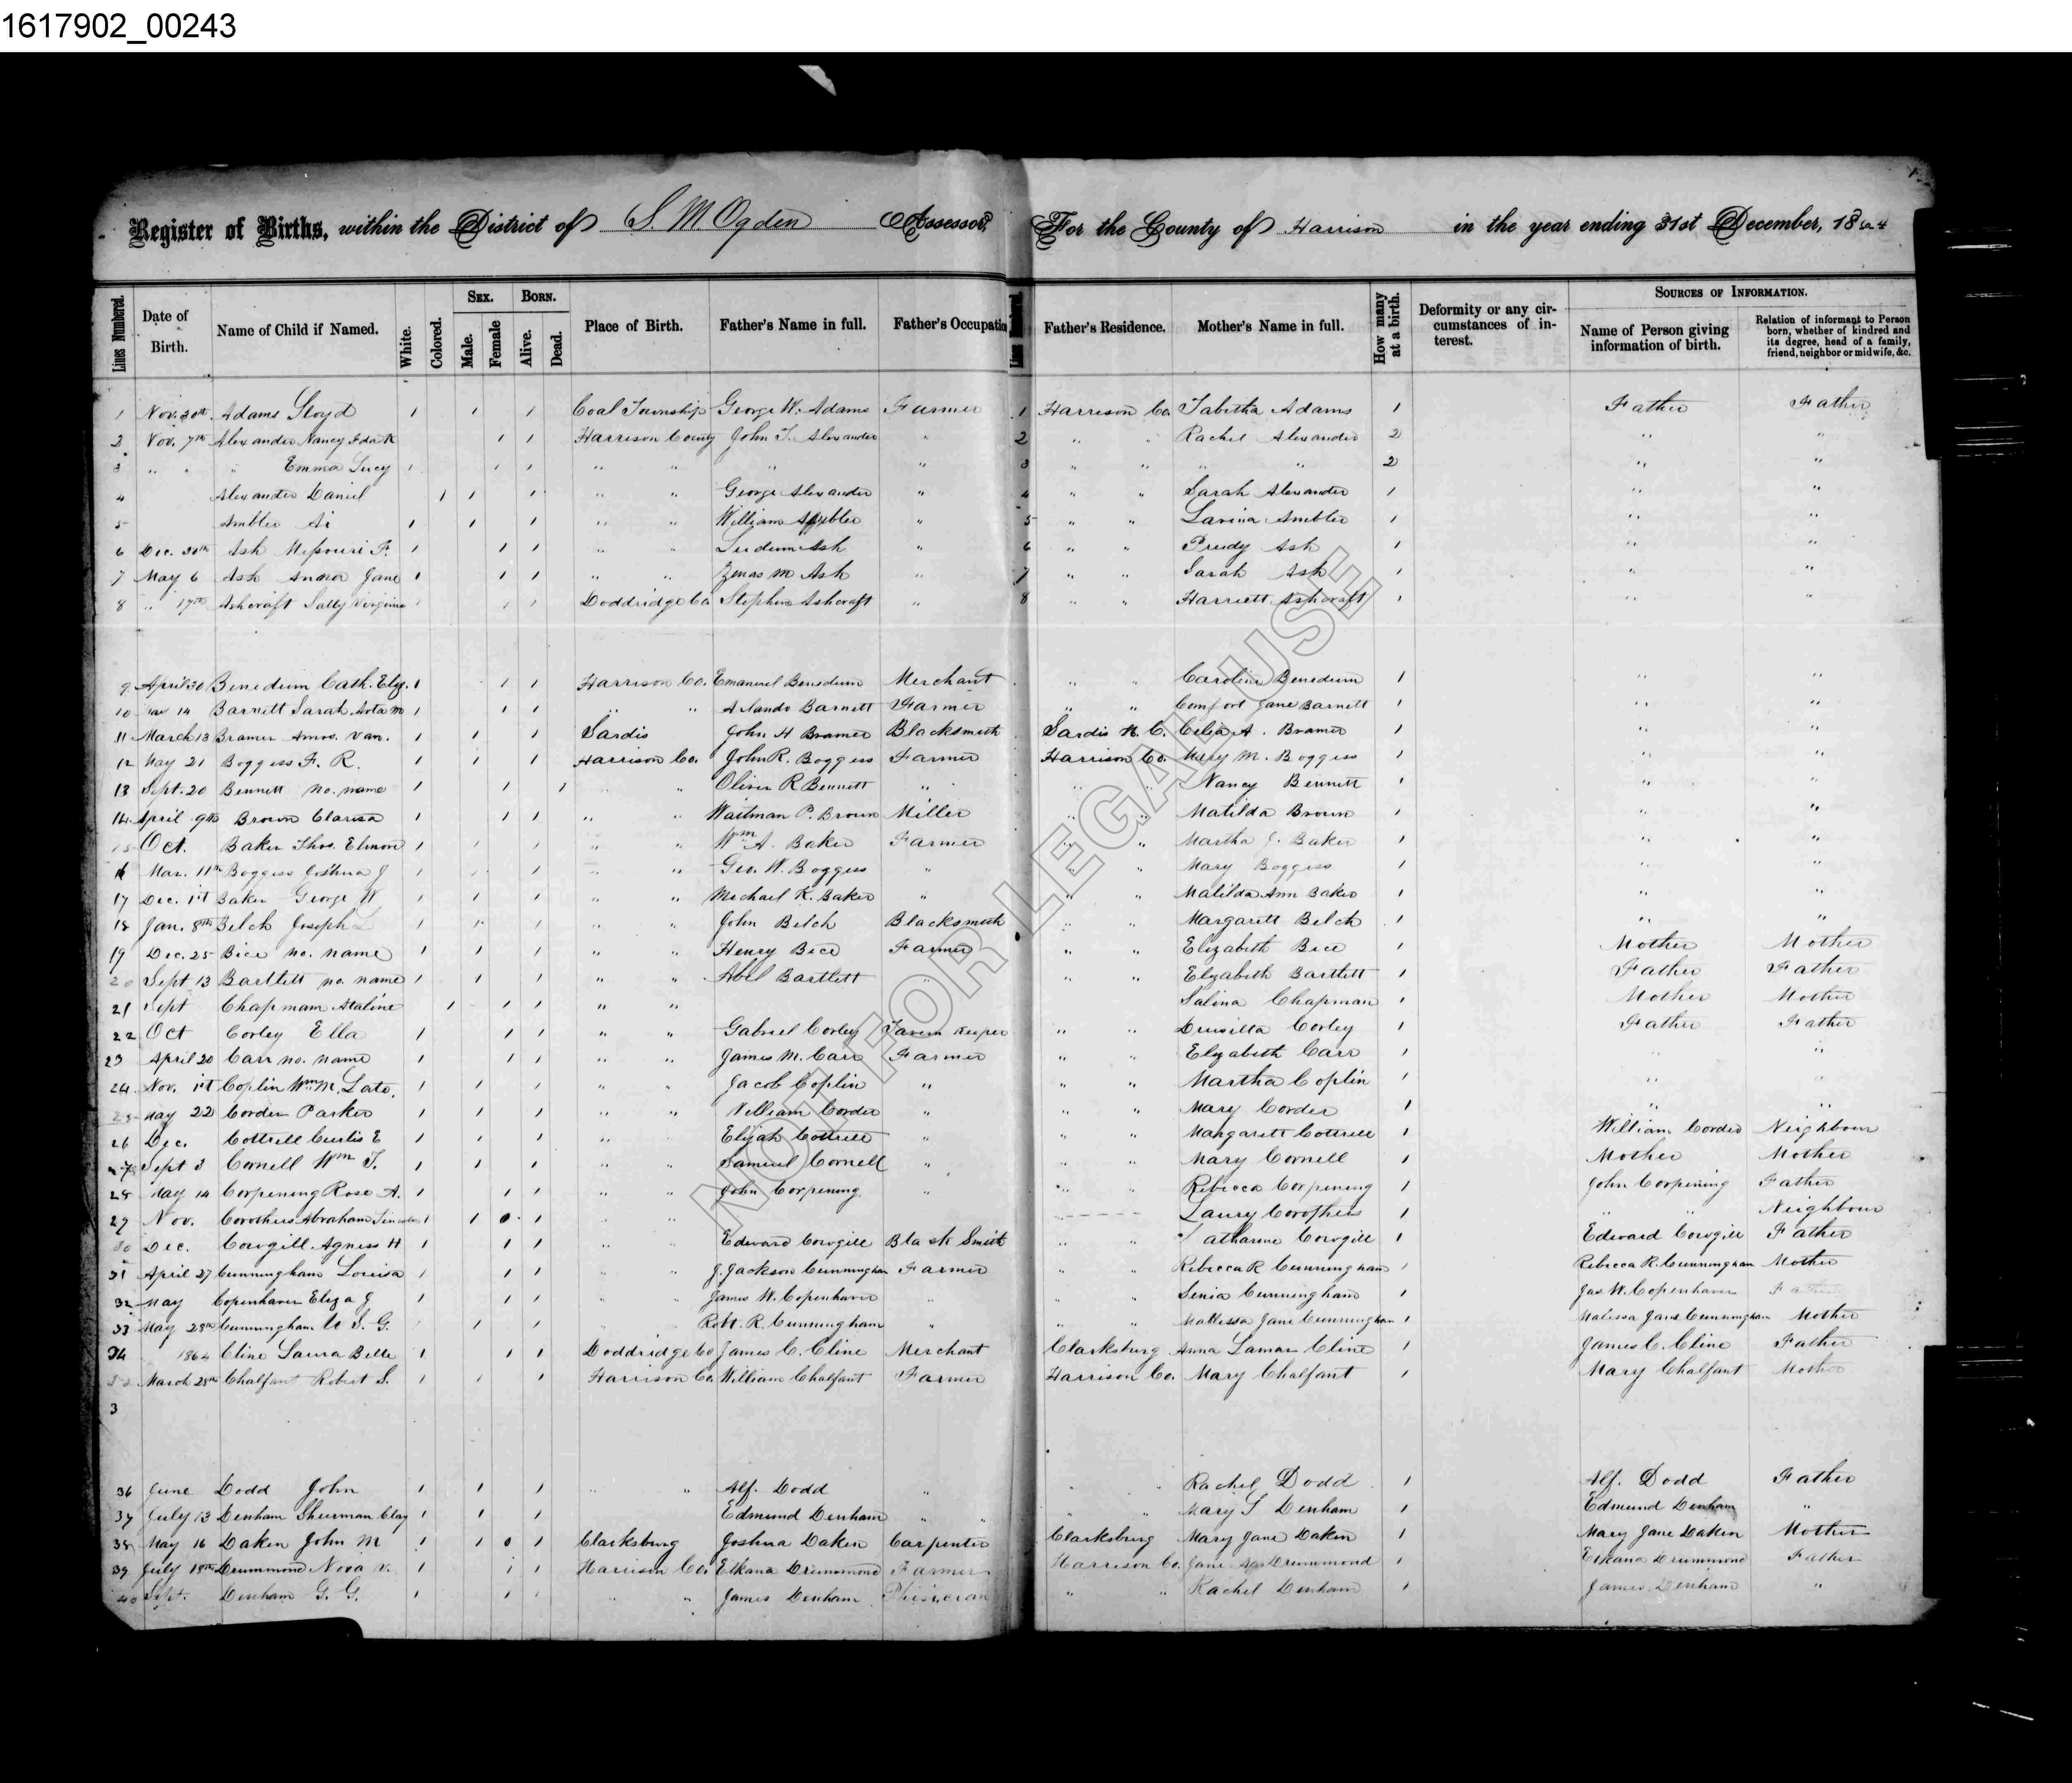 1617902_00243
Register of Births, within the District of S. M. Ogden Assessor, For the County of Harrison in the year ending 31st December, 1864
Lines Numbered. Date of Birth. Name of Child if Named. White. Colored. Sex. Male. Female Born. Alive. Dead. Place of Birth. Father's Name in full. Father's Occupation Father's Residence. Mother's Name in full. How many at a birth. Deformity or any circumstances of interest. Sources of Information. Name of Person giving information of birth. Relation of informant to Person born, whether of kindred and its degree, head of a family, friend, neighbor or midwife, &c.
1 Nov. 30th Adams Lloyd 1 1 1 Coal Township George W. Adams Farmer 1 Harrison Co. Tabitha Adams 1 Father Father
2 Nov. 7th Alexander Nancy Ida K 1 1 Harrison County John T. Alexander " 2 " " Rachel Alexander 2 " "
3 " " " Emma Lucy 1 1 1 " " " " 3 " " " " 2 " "
4 Alexander Daniel 1 1 1 " " George Alexander " 4 " " Sarah Alexander 1 " "
5 Ambler Ai 1 1 1 " " William Ambler " 5 " " Lavina Ambler 1 " "
6 Dec. 30th Ash Missouri F. 1 1 1 " " Ash " 6 " " Prudy Ash 1 " "
7 May 6 Ash Anna Jane 1 1 1 " " Zenas M Ash " 7 " " Sarah Ash 1 " "
8 " 17th Ashcraft Sally Virginia 1 1 1 Doddridge Co Stephen Ashcraft " 8 " " Harriett Ashcraft 1 " "
9 April 30 Benedum Cath. Eliz. 1 1 1 Harrison Co. Emanuel Benedum Merchant " " Caroline Benedum 1 " "
10 14 Barnett Sarah 1 1 1 " " Barnett Farmer " " Comfort Jane Barnett 1 " "
11 March 13 Bramer Amos. Van. 1 1 1 Sardis John H Bramer Blacksmith Sardis H. C. Celia A. Bramer 1 " "
12 May 21 Boggess F. R. 1 1 1 Harrison Co. John R. Boggess Farmer Harrison Co. Mary M. Boggess 1 " "
13 Sept. 20 Bennett no. name 1 1 1 " " Oliver R Bennett " " " Nancy Bennett 1 " "
14 April 9th Brown Clarisa 1 1 1 " " Waitman P. Brown Miller " " Matilda Brown 1 " "
15 Oct. Baker Thos. Elmore 1 1 1 " " Wm A. Baker Farmer " " Martha J. Baker 1 " "
16 Mar. 11th Boggess Joshua J 1 1 1 " " Geo. W. Boggess " " " Mary Boggess 1 " "
17 Dec. 1st Baker George W 1 1 1 " " Michael K. Baker " " " Matilda Ann Baker 1 " "
18 Jan. 8th Belch Joseph L 1 1 1 " " John Belch Blacksmith " " Margarett Belch 1 " "
19 Dec. 25 Bice no. name 1 1 1 " " Henry Bice Farmer " " Elizabeth Bice 1 Mother Mother
20 Sept 13 Bartlett no. name 1 1 1 " " Abel Bartlett " " " Elizabeth Bartlett 1 Father Father
21 Sept Chapman Ataline 1 1 1 " " Salina Chapman 1 Mother Mother
22 Oct Corley Ella 1 1 1 " " Gabriel Corley Tavern Keeper " " Drusilla Corley 1 Father Father
23 April 20 Carr no. name 1 1 1 " " James M. Carr Farmer " " Elizabeth Carr 1 " "
24 Nov. 1st Coplin Wm M. 1 1 1 " " Jacob Coplin " " " Martha Coplin 1 " "
25 May 22 Corder Parker 1 1 1 " " William Corder " " " Mary Corder 1 " "
26 Dec. Cottrell Curtis E 1 1 1 " Elijah Cottrell " " " Margarett Cottrell 1 William Corder Neighbour
27 Sept 3 Cornell Wm T. 1 1 1 " " Samuel Cornell " " " Mary Cornell 1 Mother Mother
28 May 14 Corpening Rose A. 1 1 1 " " John Corpening " " " Rebecca Corpening 1 John Corpening Father
29 Nov. Corothers Abraham Lincoln 1 1 1 " " Laury Corothers 1 " " Neighbour
30 Dec. Cowgill Agness H 1 1 1 " Edward Cowgill Black Smith " " Catharine Cowgill 1 Edward Cowgill Father
31 April 27 Cunningham Louisa 1 1 1 " " J. Jackson Cunningham Farmer " " Rebecca R Cunningham 1 Rebecca R. Cunningham Mother
32 May Copenhaver Eliza J 1 1 1 " " James W. Copenhaver " " " Senia Cunningham 1 Jas W. Copenhaver Father
33 May 28th Cunningham U. S. G. 1 1 1 " " Robt. R. Cunningham " " " Malissa Jane Cunningham 1 Malissa Jane Cunningham Mother
34 1864 Cline Laura Belle 1 1 1 Doddridge Co James C. Cline Merchant Clarksburg Anna Lamar Cline 1 James C. Cline Father
35 March 28th Chalfant Robert S. 1 1 1 Harrison Co. William Chalfant Farmer Harrison Co. Mary Chalfant 1 Mary Chalfant Mother
3
36 June Dodd John 1 1 1 " " Alf. Dodd " " " Rachel Dodd 1 Alf. Dodd Father
37 July 13 Denham Sherman Clay 1 1 1 Edmund Denham " " " " Mary S Denham 1 Edmund Denham "
38 May 16 Daken John M 1 1 1 Clarksburg Joshua Daken Carpenter Clarksburg Mary Jane Daken 1 Mary Jane Daken Mother
39 July 18th Drummond Nova V. 1 1 1 Harrison Co. Elkana Drummond Farmer Harrison Co. Jane Drummond 1 Elkana Drummond Father
40 Sept. Denham G. G. 1 1 1 " " James Denham Phisician " " Rachel Denham 1 James Denham "
NOT FOR LEGAL USE